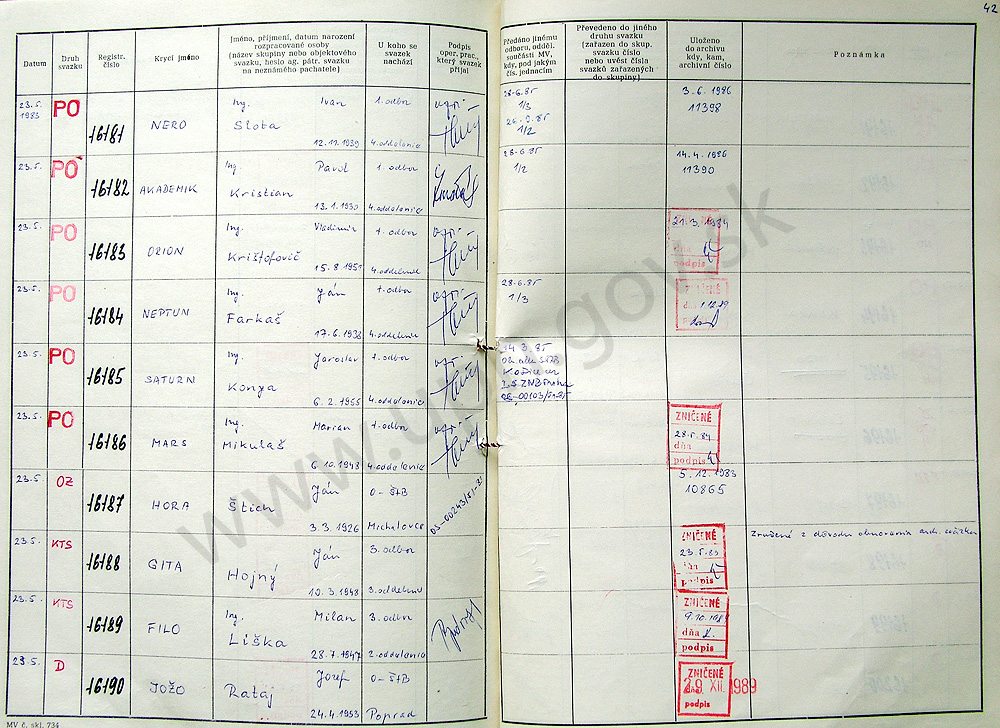 42
Datum
Druh svazku
Registr. číslo
Krycí jméno
Jméno, příjmení, datum narození
rozpracované osoby
(název skupiny nebo objektového
svazku, heslo ag. pátr. svazku
na neznámého pachatele)
U koho se
svazek
nachází
Podpis
oper. prac.,
který svazek
přijal
Předáno jinému
odboru, odděl.
součásti MV,
kdy, pod jakým
čís. jednacím
Převedeno do jiného
druhu svazku
(zařazen do skup.
svazku číslo
nebo uvést čísla
svazků zařazených
do skupiny)
Uloženo
do archivu
kdy, kam,
archivní číslo
Poznámka
23.5. 1983 PO 16181 NERO Ing. Ivan Sloba 12.11.1939 1. odbor 4. oddelenie
28.6.85 1/3
1/2
3.6.1986 11398
23.5. PO 16182 AKADEMIK Ing. Pavol Kristian 13.1.1930 1. odbor 4. oddelenie
28-6-85 1/2
14.4.1986 11390
23.5. PO 16183 ORION Ing. Vladimír Krištofovič 15.8.1951 1. odbor 4. oddelenie
21.3.1984
dňa
podpis
23.5. PO 16184 NEPTUN Ing. Ján Farkaš 17.6.1938 1. odbor 4. oddelenie
28-6-85 1/3
ZNIČENÉ
23.5. PO 16185 SATURN Ing. Jaroslav Konya 6.2.1955 1. odbor 4. oddelenie
14.3.85
23.5. PO 16186 MARS Ing. Marian Mikuláš 6.10.1948 1. odbor 4. oddelenie
ZNIČENÉ
dňa
podpis
23.5. OZ 16187 HORA Ján Štich 3.3.1926 O-ŠtB Michalovce
5.12.1983 10865
23.5. KTS 16188 GITA Ján Hojný 10.3.1948 3. odbor 3. oddelenie
ZNIČENÉ
23.5.89
dňa
podpis
Zničené z dôvodu
23.5. KTS 16189 FILO Ing. Milan Liška 28.7.1947 3. odbor 2. oddelenie
ZNIČENÉ
dňa
podpis
23.5. D 16190 JOŽO Jozef Rataj 24.4.1953 O-ŠtB Poprad
ZNIČENÉ
29. XII. 1989
podpis
MV č. skl. 734